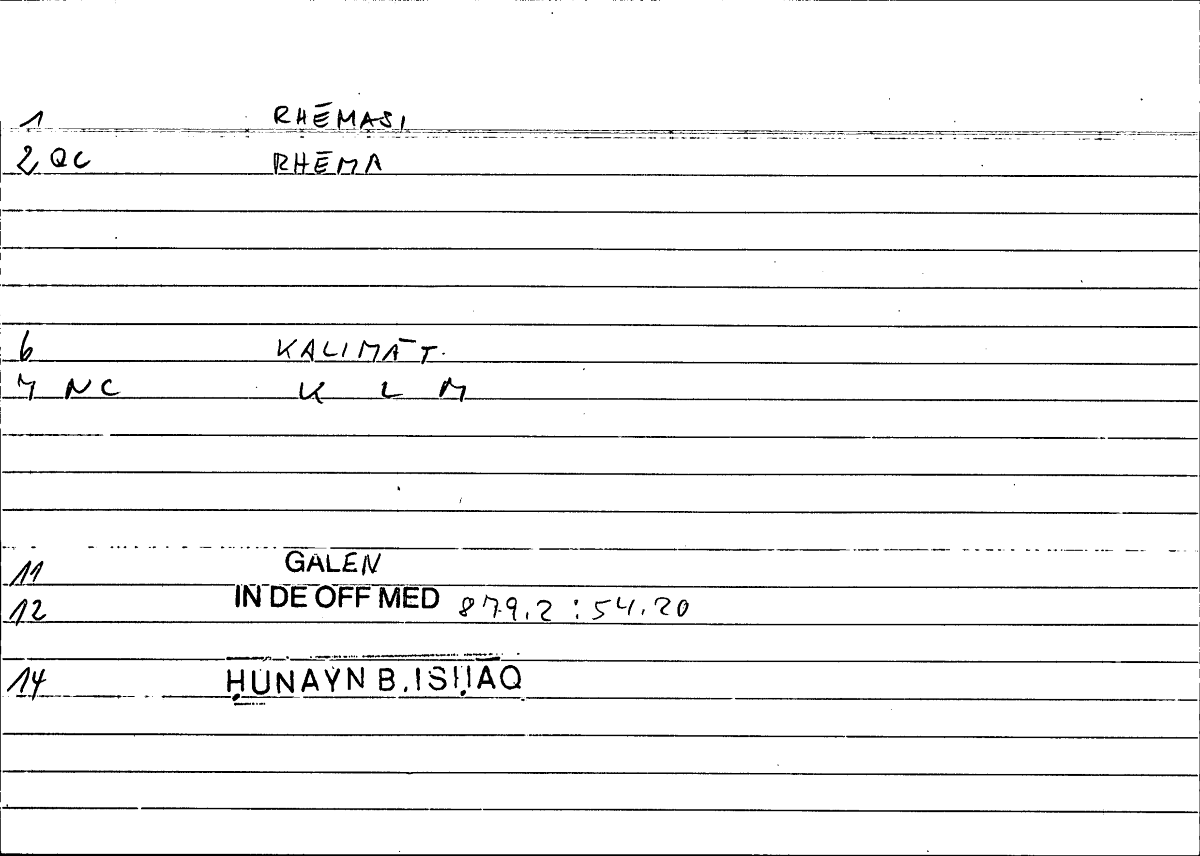 1 RHĒMASI
2 QC RHĒMA
6 KALIMĀT.
7 NC K L M
11 GALEN
12 IN DE OFF MED 879.2 : 54.20
14 ḤUNAYN B. ISḤĀQ